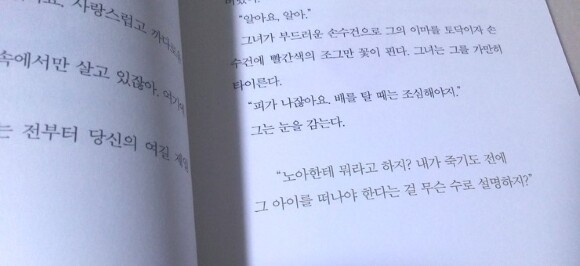 사랑스럽고
속에서만 살고 있잖아. 여기
는 전부터 당신의 여길 제일
"알아요, 알아."
그녀가 부드러운 손수건으로 그의 이마를 토닥이자 손
수건에 빨간색의 조그만 꽃이 핀다. 그녀는 그를 가만히
타이른다.
"피가 나잖아요. 배를 탈 때는 조심해야지."
그는 눈을 감는다.
"노아한테 뭐라고 하지? 내가 죽기도 전에
그 아이를 떠나야 한다는 걸 무슨 수로 설명하지?"